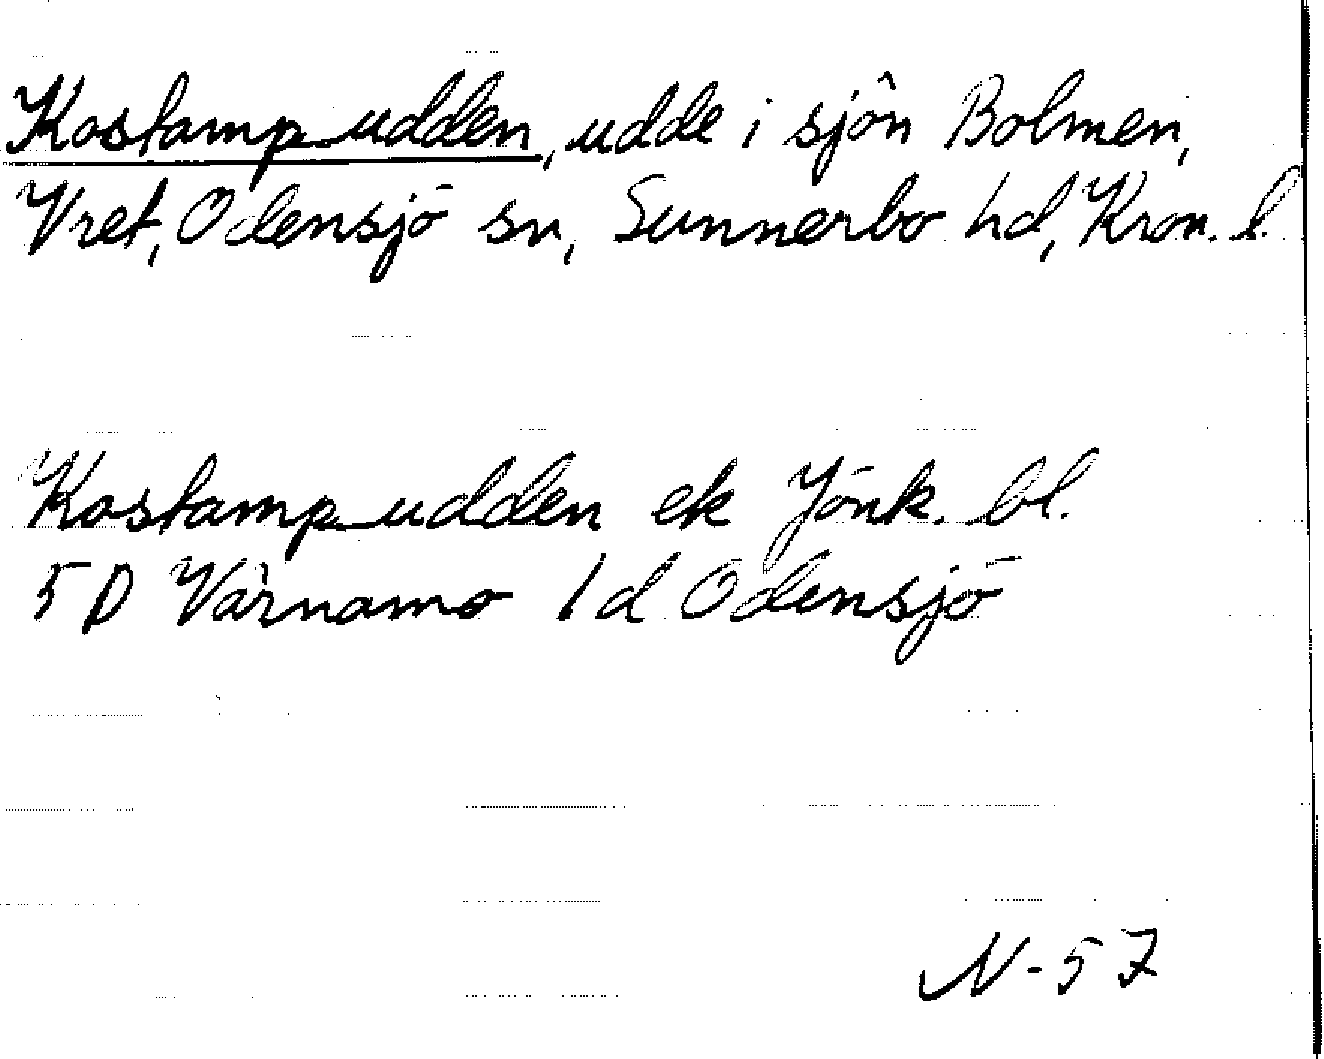 Kostampudden, udde i sjön Bolmen,
Vret, Odensjö sn, Sunnerbo hd, Kron. l.
Kostampudden ek Jönk. bl.
5D Värnamo 1d Odensjö
N-57